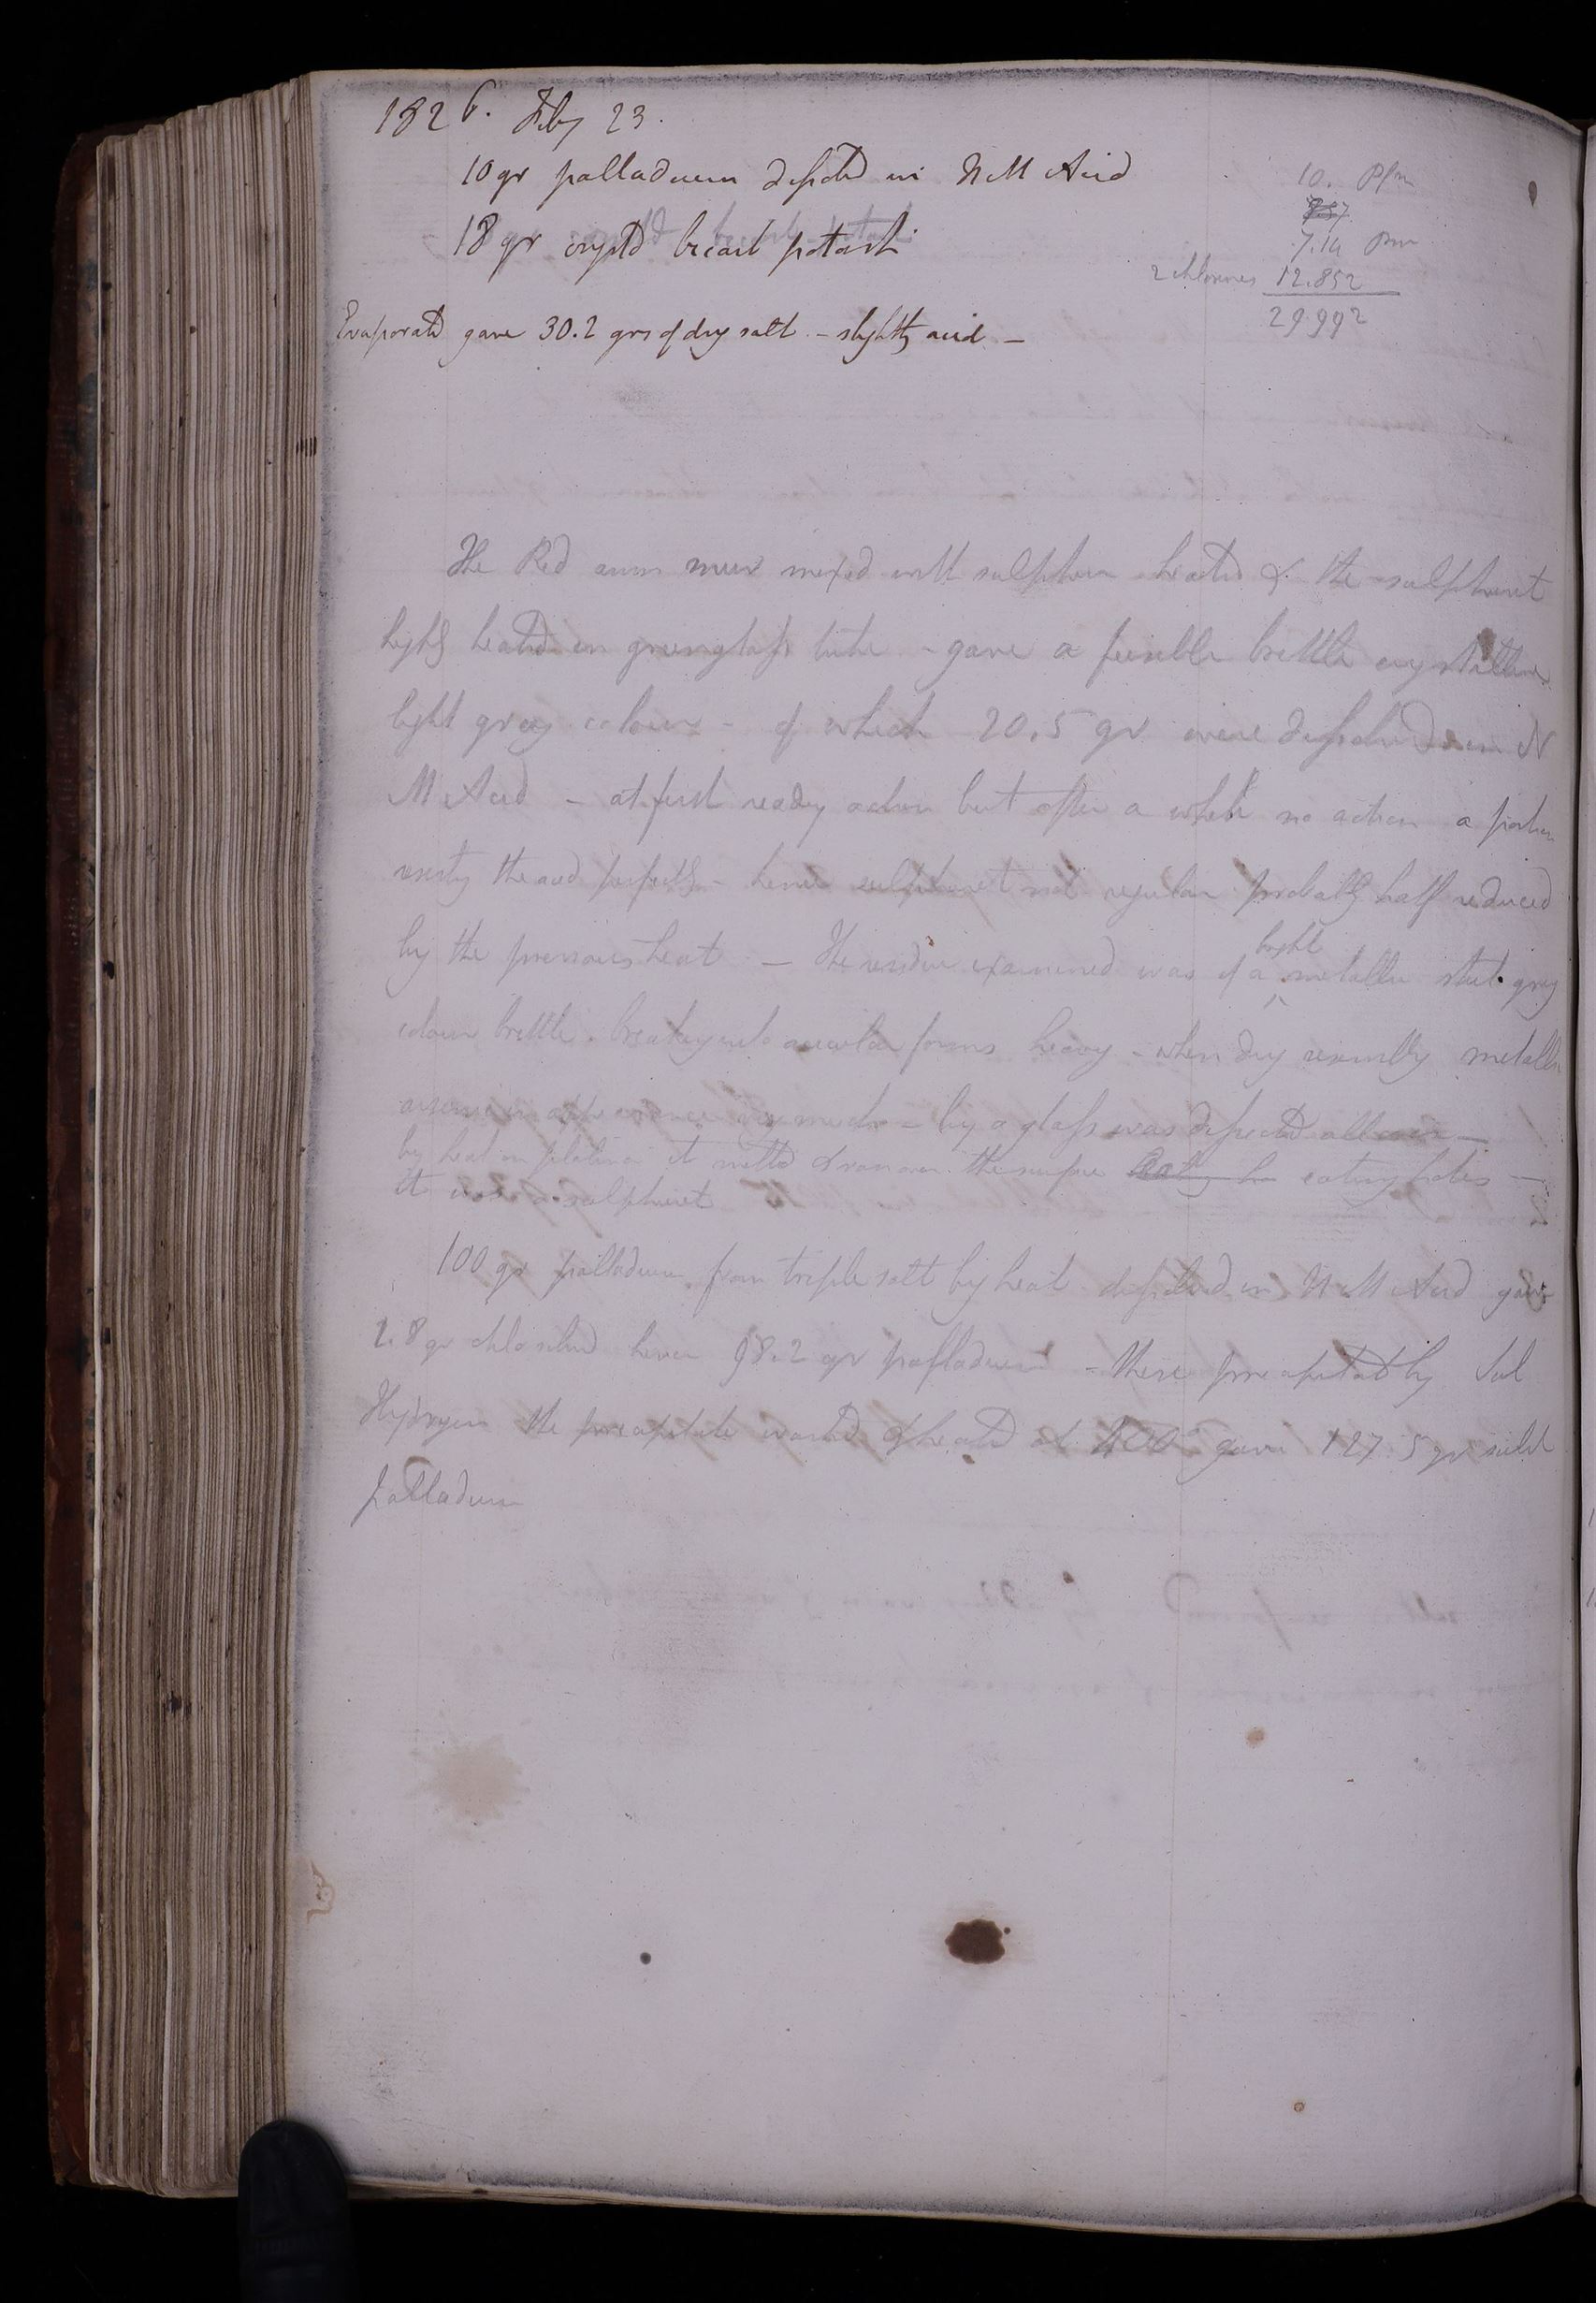 1826. Feby 23.
10 gr palladium dissolved in N M Acid
18 gr crystd bicarb potash
Evaporated gave 30.2 grs of dry salt - slightly acid -
10.
7.14
2 chlorines 12.852
29.992
The Red amm mur mixed with sulphur heated & the sulphuret
highly heated in green glass tube - gave a fusible brittle crystalline
light grey colour - of which 20.5 gr were dissolved in N
M Acid - at first ready action but after a while no action a portion
resisting the acid perfectly - hence sulphuret not regular probably half reduced
by the previous heat - The residue examined was of a bright metallic steel grey
colour brittle. breaking into acicular forms heavy - when dry resembling metallic
arsenic in appearance very much - by a glass was dissected all over -
by heat on platina it melted & ran over the surface eating holes -
it was a sulphuret
100 gr palladium from triple salt by heat dissolved in N M Acid gave
1.8 gr chloride hence 98.2 gr palladium - these precipitated by Sul
Hydrogen the precipitate washed & heated at gave 127.5 gr sulet
palladium